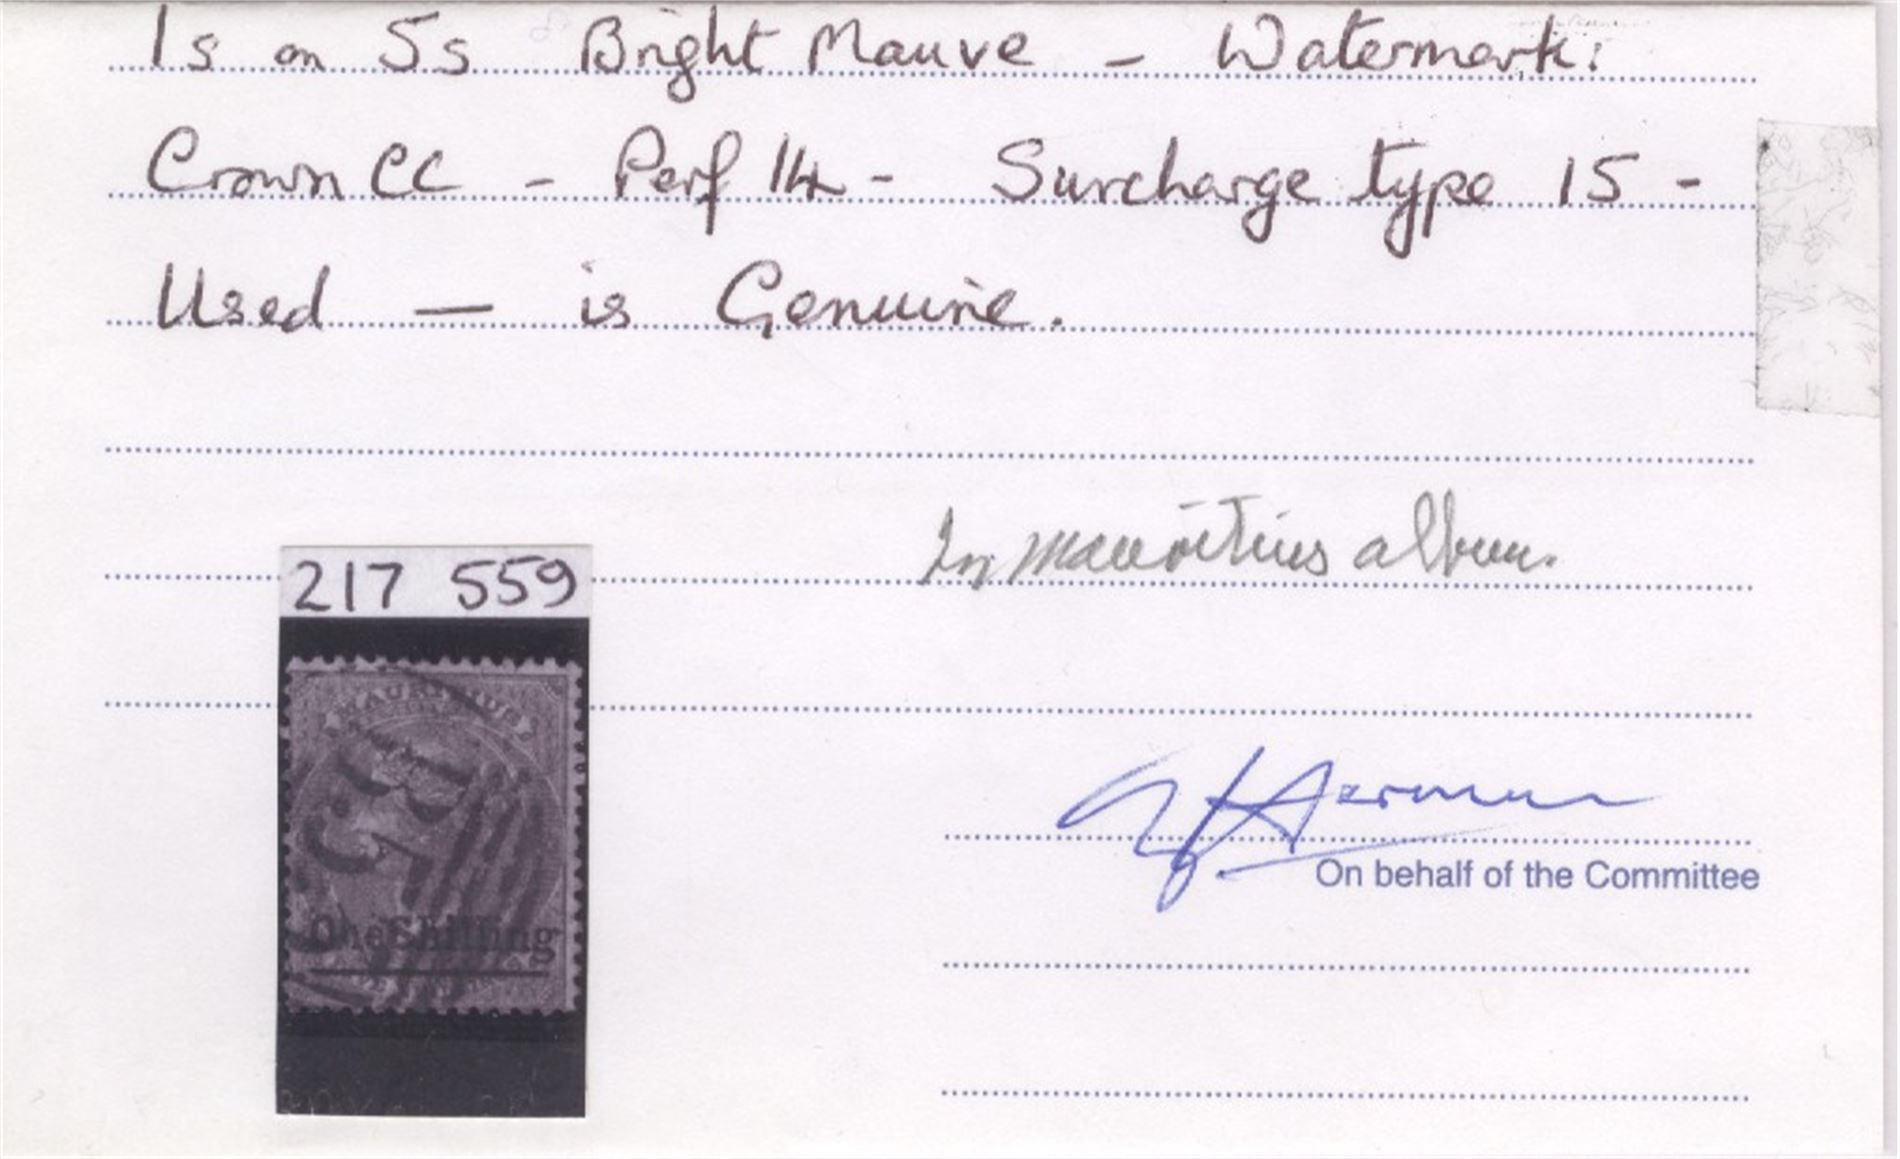 1s on 5s Bright Mauve - Watermark:
Crown CC - Perf 14 - Surcharge type 15 -
Used — is Genuine.
In Mauritius album.
217 559
MAURITIUS
One Shilling
Herman
On behalf of the Committee